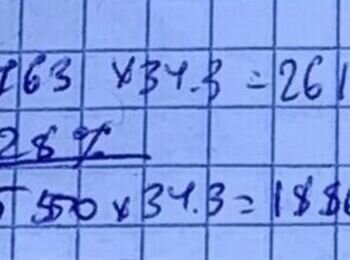 763 x 34.3 = 261
28 %
5 550 x 34.3 = 188